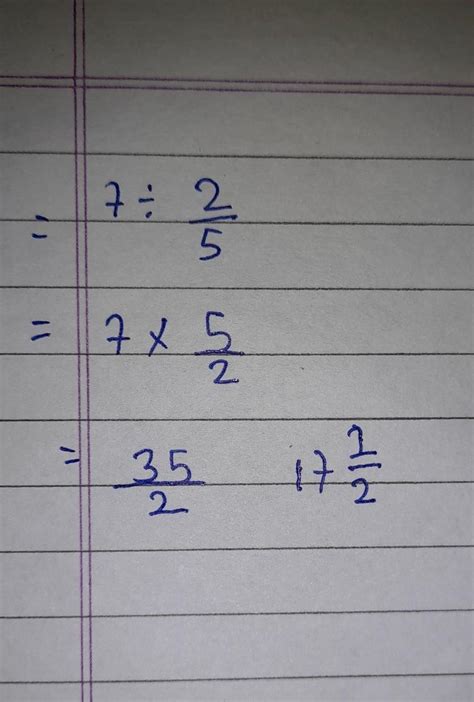 = 7 ÷ 2/5
= 7 × 5/2
= 35/2 17 1/2